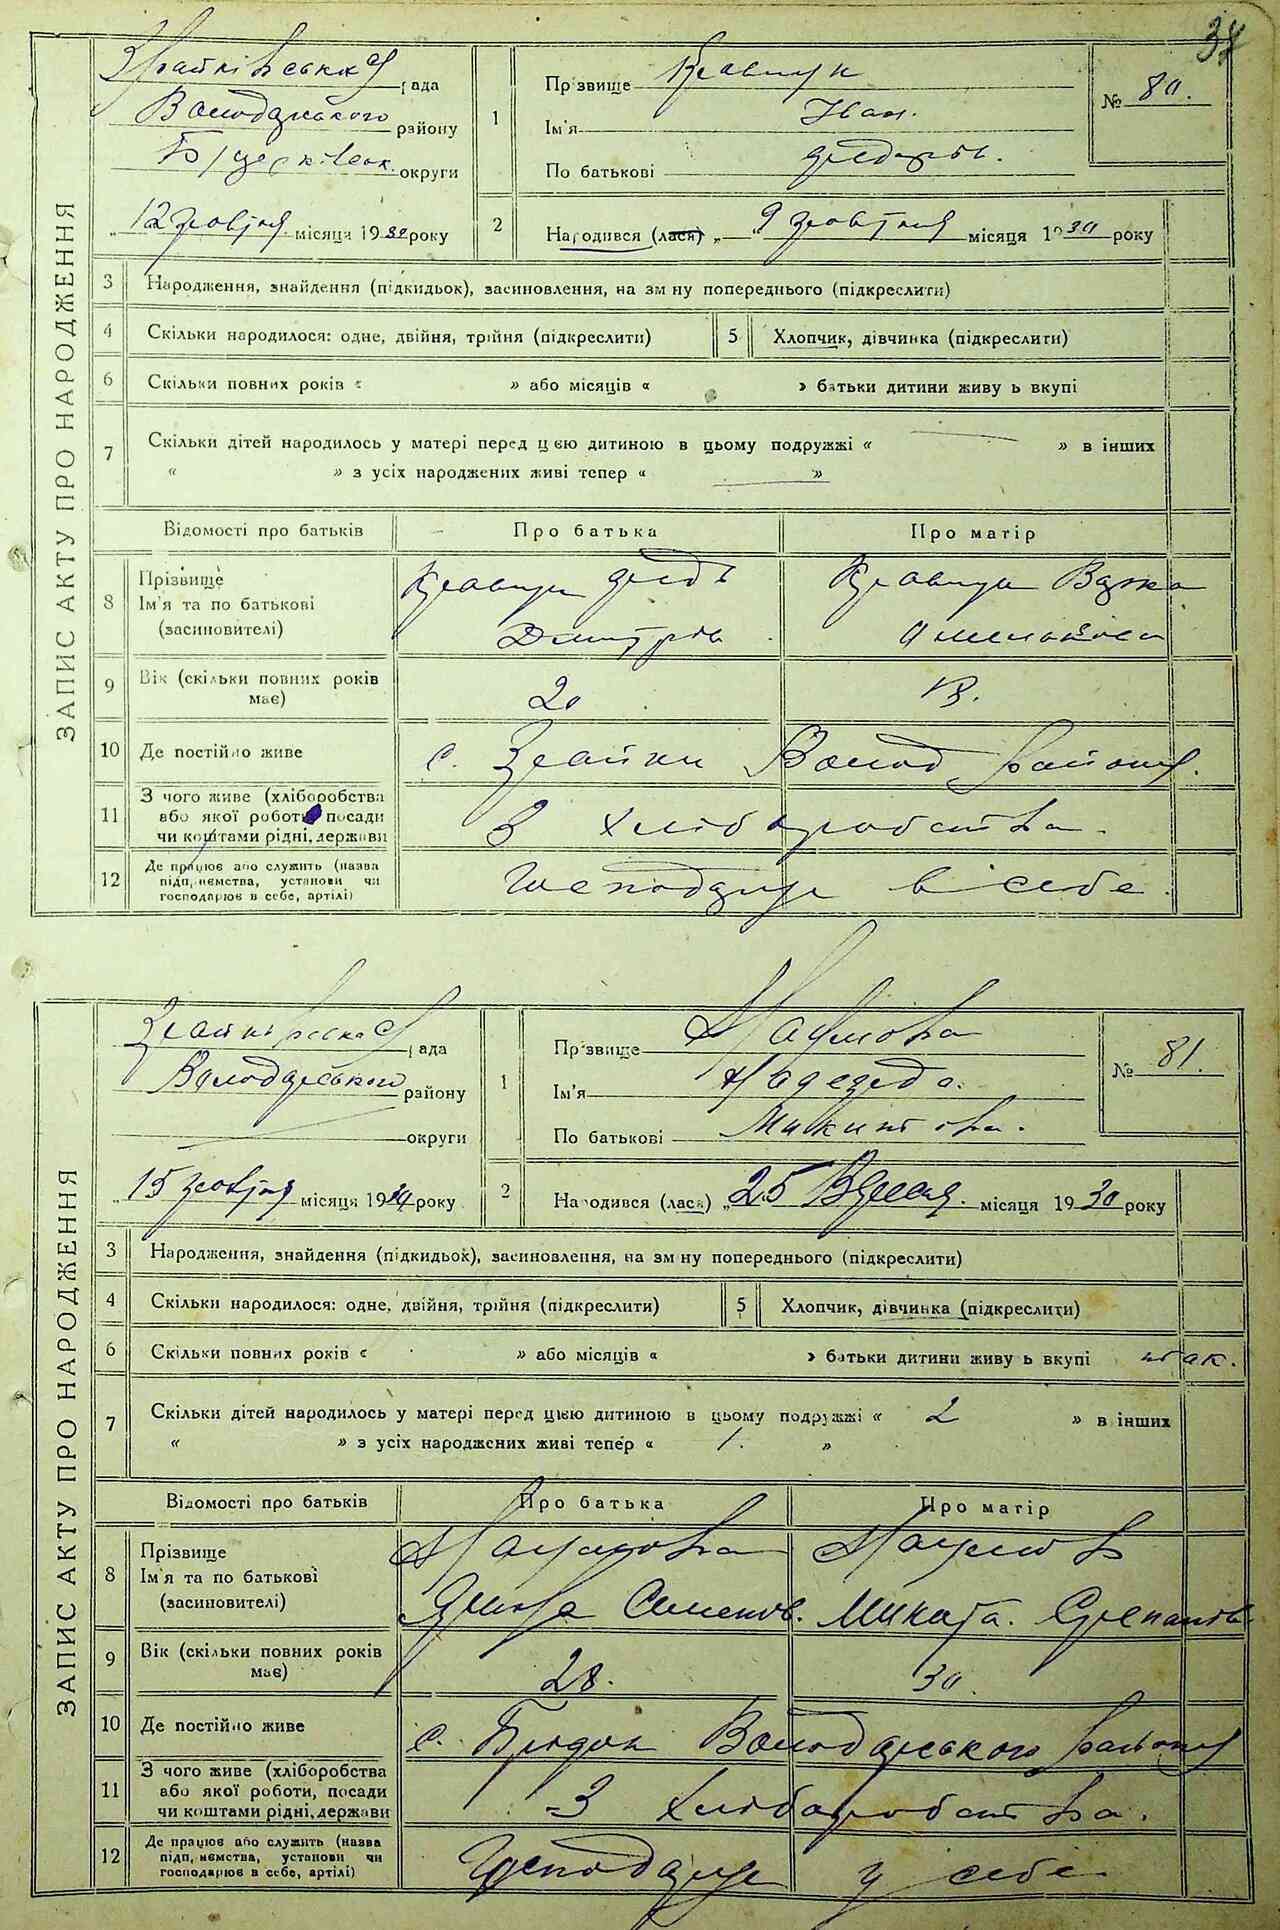 37
ЗАПИС АКТУ ПРО НАРОДЖЕННЯ
Зрайківська рада
Володарського району
Б/церківськ. округи
„12 жовтня місяця 1930 року
1
Прізвище Кравчук
Ім'я Иван.
По батькові
№ 80.
2
Народився (лася) „ 9 жовтня місяця 1930 року
3 Народження, знайдення (підкидьок), засиновлення, на зміну попереднього (підкреслити)
4 Скільки народилося: одне, двійня, трійня (підкреслити) 5 Хлопчик, дівчинка (підкреслити)
6 Скільки повних років « » або місяців « » батьки дитини живуть вкупі
7 Скільки дітей народилось у матері перед цією дитиною в цьому подружжі « — » в інших
« » з усіх народжених живі тепер « — »
Відомості про батьків Про батька Про матір
8 Прізвище
Ім'я та по батькові
(засиновителі)
Кравчук
Дмитрів
Кравчук
9 Вік (скільки повних років має) 20 18.
10 Де постійно живе с. Зрайки Волод району.
11 З чого живе (хліборобства або якої роботи, посади чи коштами рідні, держави З хліборобства.
12 Де працює або служить (назва підприємства, установи чи господарює в себе, артілі) Господарує в себе.
ЗАПИС АКТУ ПРО НАРОДЖЕННЯ
Зрайківська рада
Володарського району
— округи
„15 жовтня місяця 1930 року
1
Прізвище Наумова
Ім'я Надежда.
По батькові Микитовна.
№ 81.
2
Народився (лася) „25 Вересня. місяця 1930 року
3 Народження, знайдення (підкидьок), засиновлення, на зміну попереднього (підкреслити)
4 Скільки народилося: одне, двійня, трійня (підкреслити) 5 Хлопчик, дівчинка (підкреслити)
6 Скільки повних років « » або місяців « » батьки дитини живуть вкупі так.
7 Скільки дітей народилось у матері перед цією дитиною в цьому подружжі « 2 » в інших
« » з усіх народжених живі тепер « 1. »
Відомості про батьків Про батька Про матір
8 Прізвище
Ім'я та по батькові
(засиновителі)
Наумова
Семенов.
Наумов
Микита. Степанов
9 Вік (скільки повних років має) 28. 30.
10 Де постійно живе с. Володарського району
11 З чого живе (хліборобства або якої роботи, посади чи коштами рідні, держави З хліборобства.
12 Де працює або служить (назва підприємства, установи чи господарює в себе, артілі) Господарує у себе